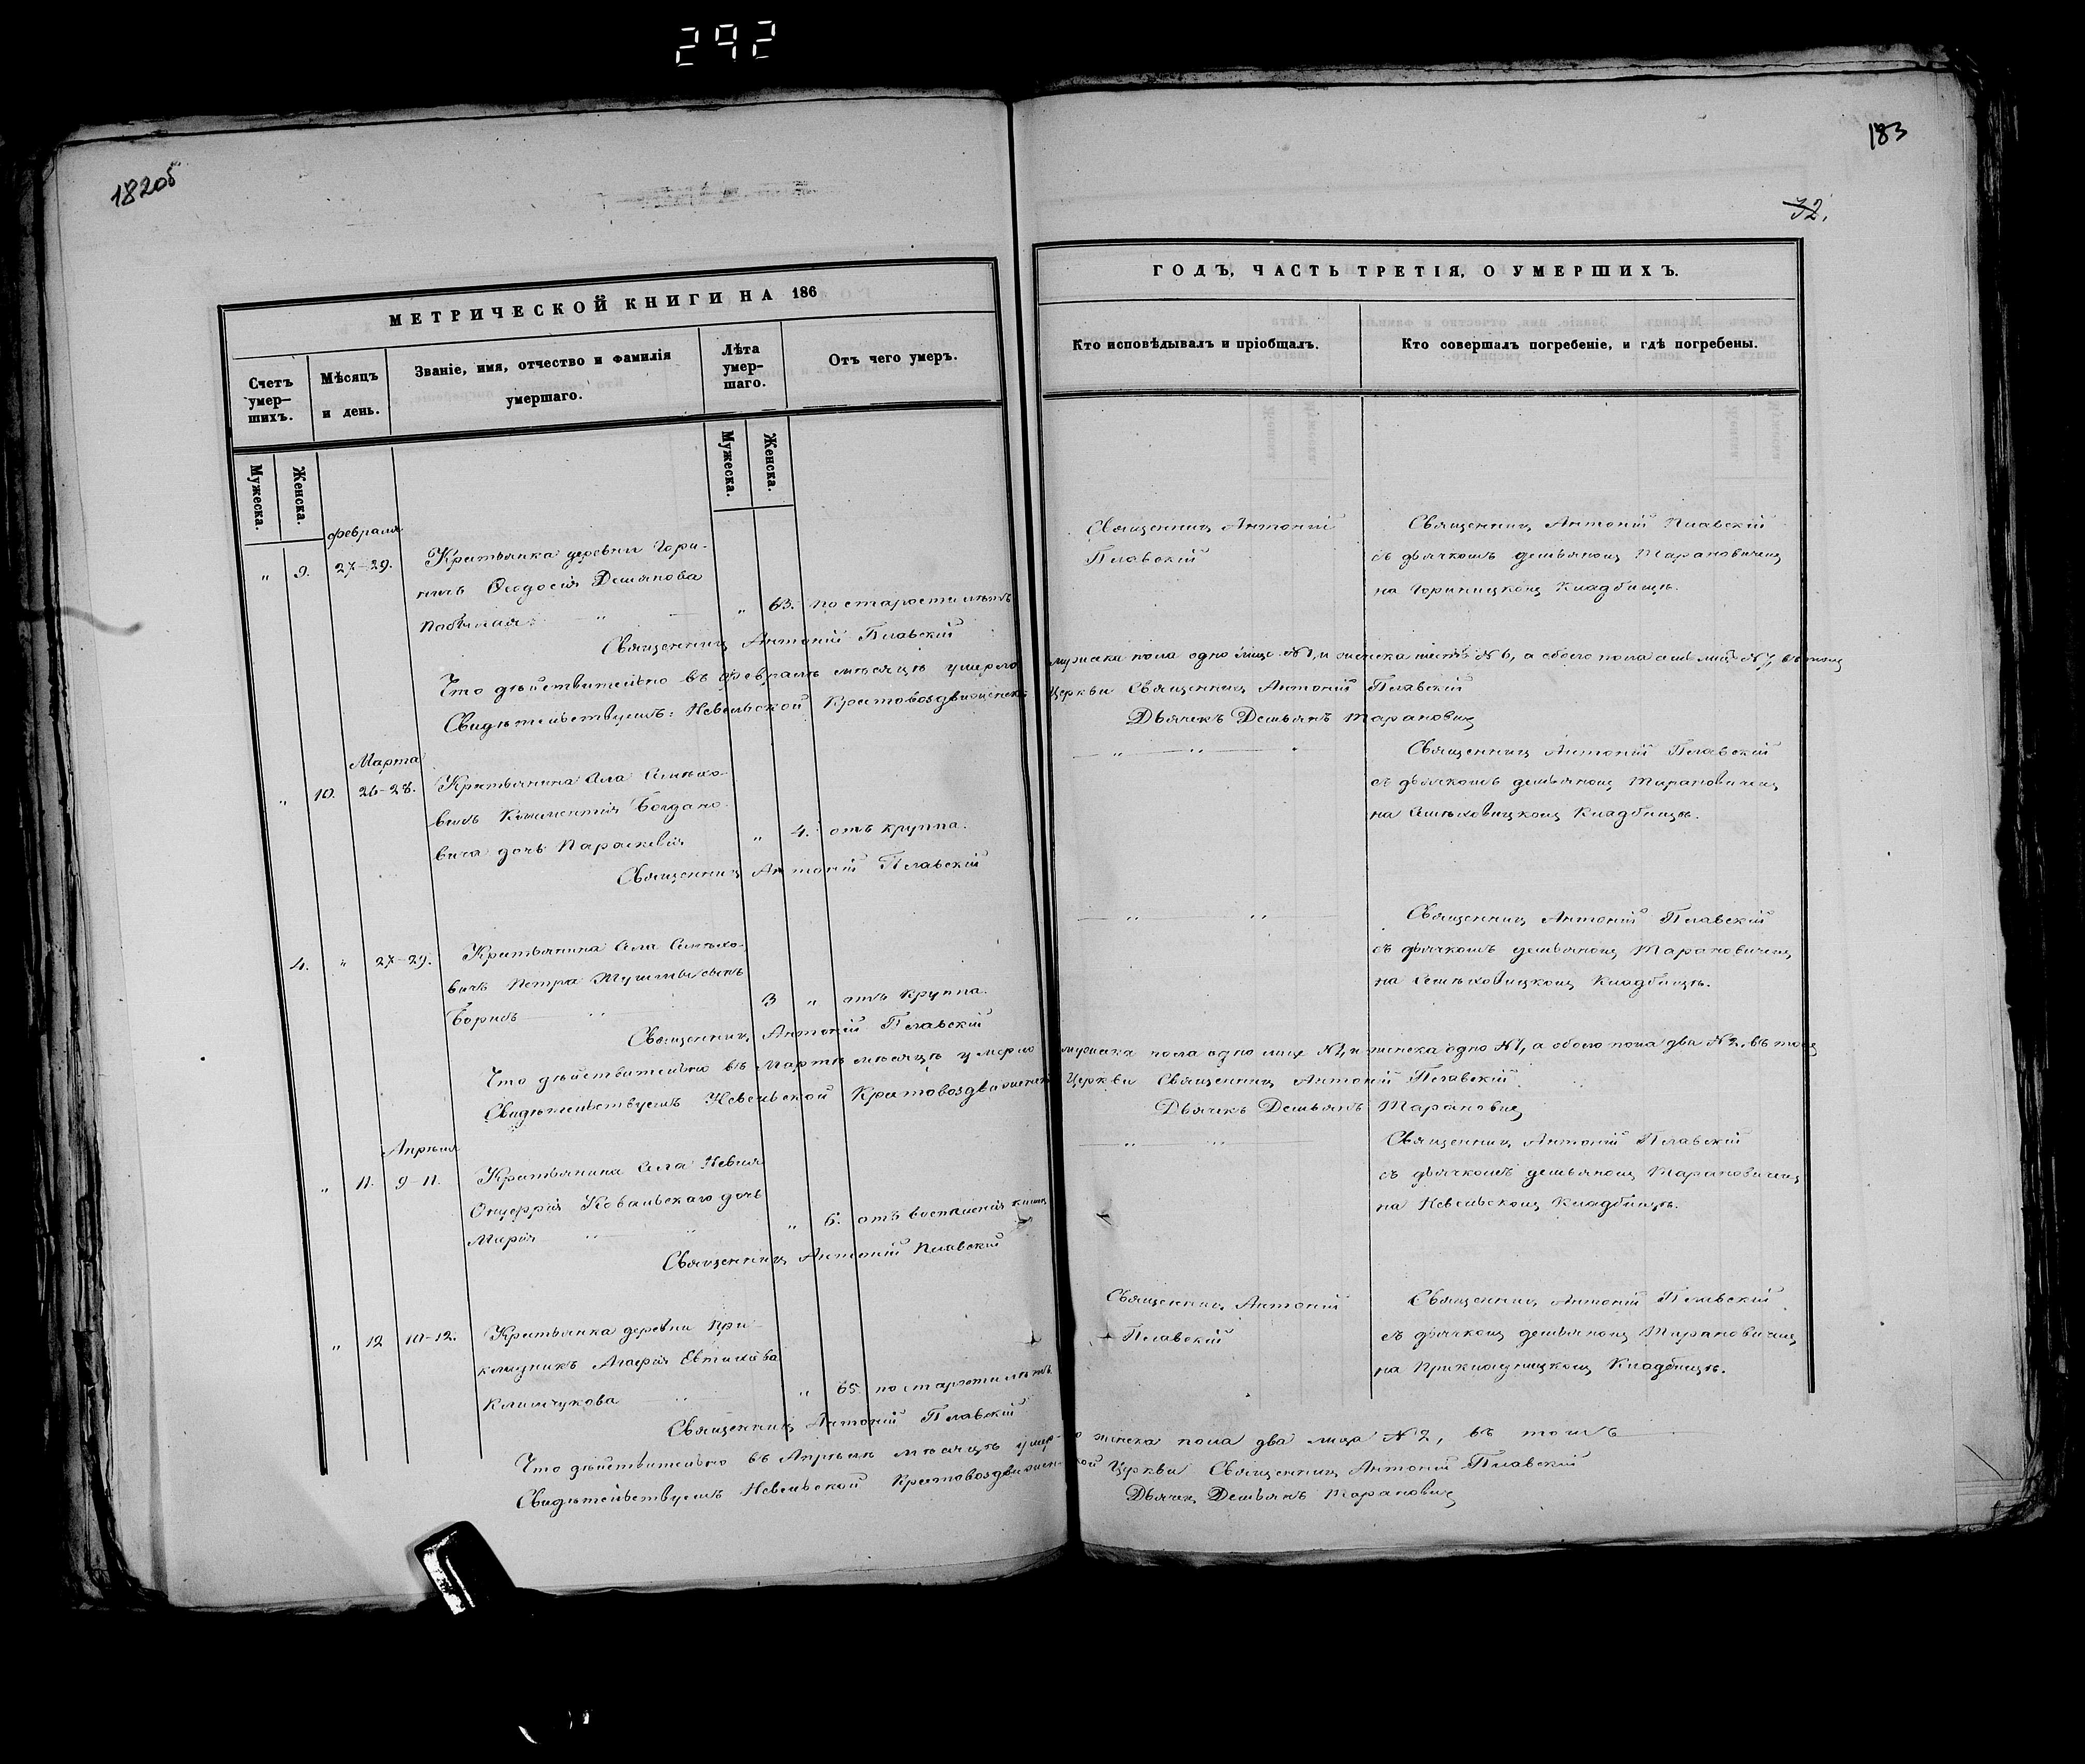 292
182об
183
32.
МЕТРИЧЕСКОЙ КНИГИ НА 186
Счетъ умер-шихъ.
Мѣсяцъ и день.
Званіе, имя, отчество и фамилія умершаго.
Лѣта умер-шаго.
Отъ чего умеръ.
Мужеска.
Женска.
Мужеска.
Женска.
Февраля
" 9. 27-29. Крестьянка деревни Гори-
ничъ Ѳеодосія Демянова
" 63. по старости лѣтъ
Священникъ Антоній Пѣлавскій
Что дѣйствительно въ Февралѣ мѣсяцѣ умерло
Свидѣтельствуемъ: Невельской Крестовоздвиженской
Марта
" 10. 26-28. Крестьянина села Семихо-
вичъ Климентія Богдано-
вича дочь Параскевія " 4. отъ круппа.
Священникъ Антоній Пѣлавскій
4. " 27-29. Крестьянина села Семихо-
вичъ Петра сынъ
Борисъ 3 " отъ круппа.
Священникъ Антоній Пѣлавскій
Что дѣйствительно въ Мартѣ мѣсяцѣ умерло
Свидѣтельствуемъ Невельской Крестовоздвиженской
Апрѣля
" 11. 9-11. Крестьянина села Невля
Онуфрія Ковальскаго дочь
Марія " 6. отъ воспаленія кишекъ
Священникъ Антоній Пѣлавскій
" 12 10-12. Крестьянка деревни При-
кладникъ Агафія Евтихіева
Климчукова " 65 по старости лѣтъ.
Священникъ Антоній Пѣлавскій
Что дѣйствительно въ Апрѣлѣ мѣсяцѣ умер-
Свидѣтельствуемъ Невельской Крестовоздвижен-
ГОДЪ, ЧАСТЬ ТРЕТІЯ, О УМЕРШИХЪ.
Кто исповѣдывалъ и пріобщалъ.
Кто совершалъ погребеніе, и гдѣ погребены.
Священникъ Антоній
Пѣлавскій
Священникъ Антоній Пѣлавскій
съ дьячкомъ Демьяномъ Тарановичемъ
на Гориницкомъ кладбищѣ.
мужеска пола одно лице №1, и женска шесть №6, а обоего пола семь лицъ №7, въ томъ
Церкви Священникъ Антоній Пѣлавскій
Дьячекъ Демьянъ Тарановичъ
Священникъ Антоній Пѣлавскій
съ дьячкомъ Демьяномъ Тарановичемъ
на Семиховицкомъ кладбищѣ.
Священникъ Антоній Пѣлавскій
съ дьячкомъ Демьяномъ Тарановичемъ
на Семиховицкомъ кладбищѣ.
мужеска пола одно лице №1, и женска одно №1, а обоего пола два №2. въ томъ
Церкви Священникъ Антоній Пѣлавскій
Дьячекъ Демьянъ Тарановичъ
Священникъ Антоній Пѣлавскій
съ дьячкомъ Демьяномъ Тарановичемъ
на Невельскомъ кладбищѣ.
Священникъ Антоній
Пѣлавскій
Священникъ Антоній Пѣлавскій
съ дьячкомъ Демьяномъ Тарановичемъ
на Прикладницкомъ кладбищѣ.
ло женска пола два лица №2, въ томъ
ской Церкви Священникъ Антоній Пѣлавскій
Дьячекъ Демьянъ Тарановичъ